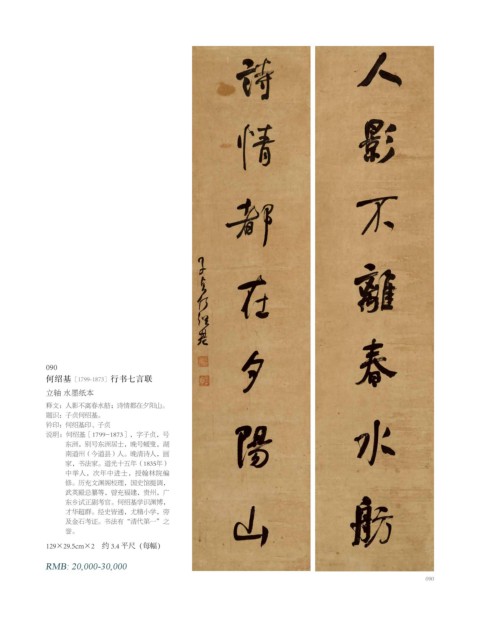 人影不離春水舫
詩情都在夕陽山
子貞何紹基
090
何绍基［1799-1873］行书七言联
立轴 水墨纸本
释文：人影不离春水舫；诗情都在夕阳山。
题识：子贞何绍基。
钤印：何绍基印、子贞
说明：何绍基［1799-1873］，字子贞，号
东洲，别号东洲居士，晚号蝯叟。湖
南道州（今道县）人。晚清诗人、画
家、书法家。道光十五年（1835年）
中举人，次年中进士，授翰林院编
修。历充文渊阁校理，国史馆提调，
武英殿总纂等，曾充福建，贵州，广
东乡试正副考官。何绍基学识渊博，
才华超群。经史皆通，尤精小学，旁
及金石考证。书法有“清代第一”之
誉。
129×29.5cm×2 约3.4平尺（每幅）
RMB: 20,000-30,000
090